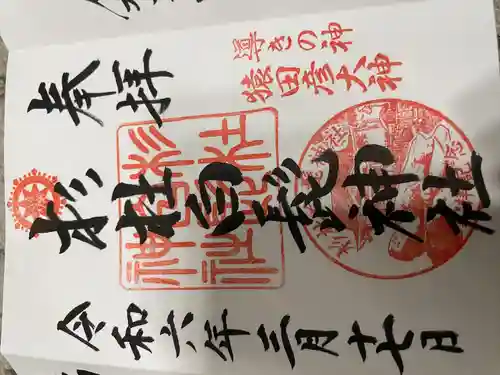 導きの神
猿田彦大神
奉拝
杉杜白髭神社
令和六年三月十七日